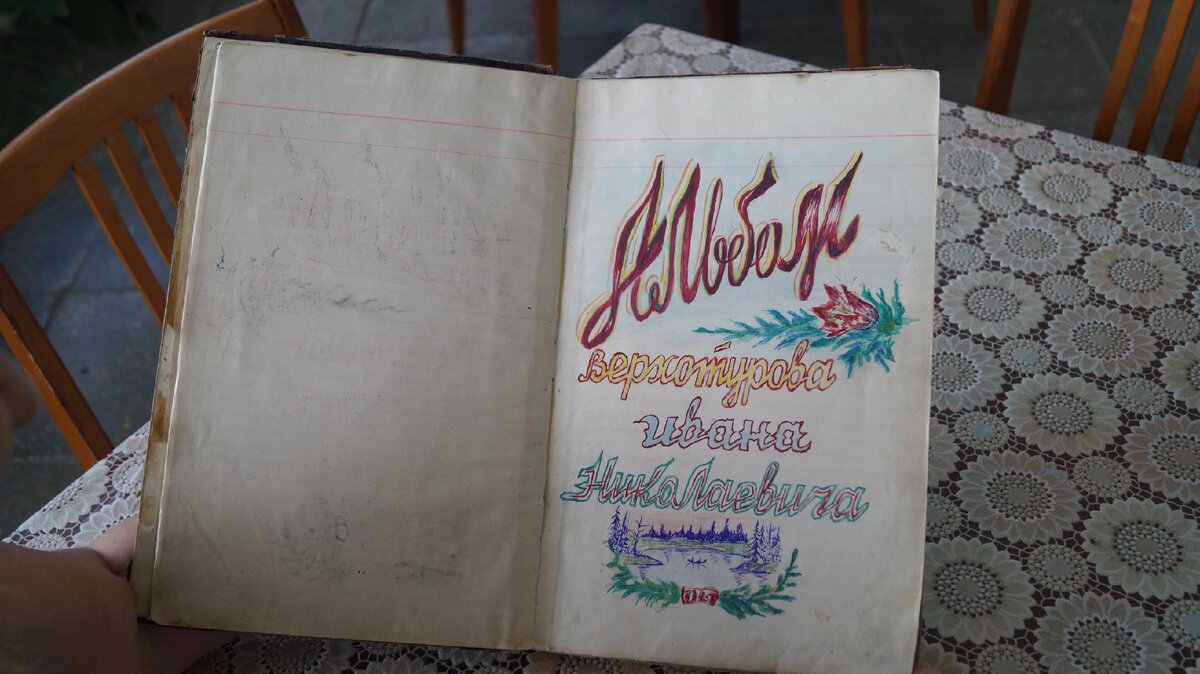 Альбом
Верхотурова
Ивана
Николаевича